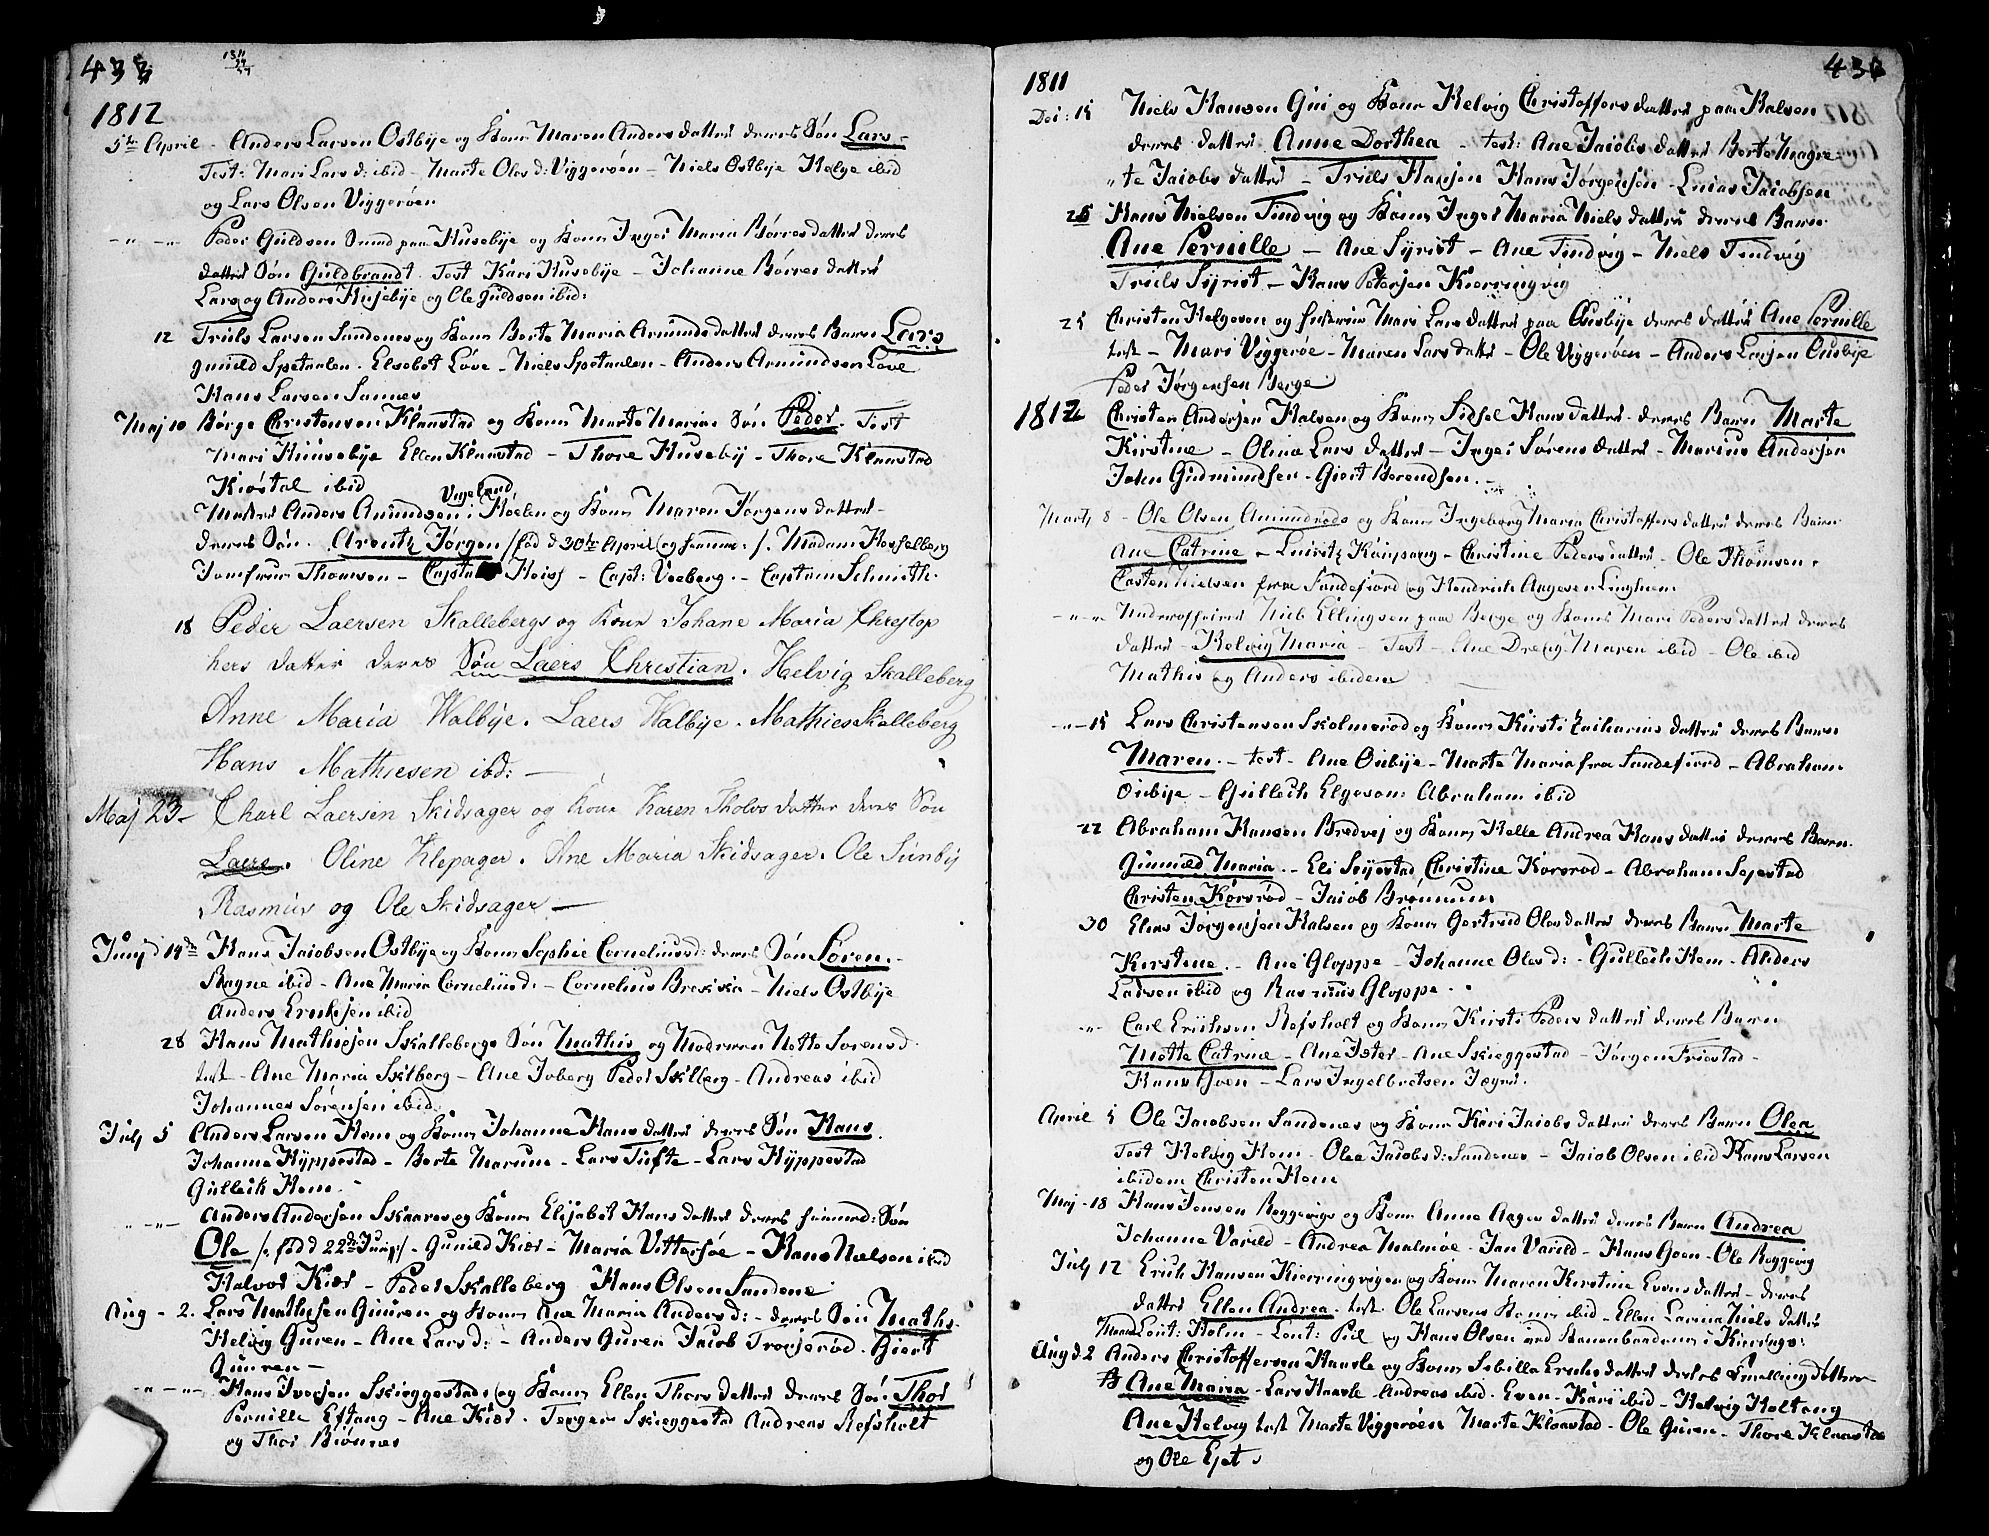 433
1811
1812
5te April - Anders Larsen Ostbÿe og Kone Maren Anders datter deres Søn Lars -
Test: Mari Lars d: ibid - Marte Oles d: Viggerøen - Niels Ostbÿe Helge ibid
og Lars Olsen Viggerøen
- " - " - Peder Guldsen Smed paa Husebÿe og Kone Inger Maria Børresdatter deres
datter Søn Guldbrandt. Test Kari Husebÿe - Johanne Børres datter
Lars og Anders Husebÿe og Ole Guldsen ibid:
12 Truls Larsen Sandenes og Kone Berte Maria Amunds datter deres Barn Lars
Gunild Spetaalen. Elsebet Løve - Niels Spetaalen - Anders Amundsen Løve
Hans Larsen Sannes
Maj 10 Børge Christensen Klaastad og Kone Marte Marias Søn Peder. Test
Mari Huusebÿe Ellen Klaastad - Thore Husebÿ - Thore Klaastad
Kiøstal ibid
Vogeland
Anders Amundsen i Høelen og Kone Maren Jørgens datter -
deres Søn. Arentz Jørgen /: fød d 30te April og hiemme: /. Madam Hesselberg
Jomfrue Thomsen - Capta Heisf - Capt: Veeberg. - Captain Schmith.
18 Peder Laersen Skallebergs og Kone Johane Maria Chrestop
hers datter deres Søn Laers Christian. Helvig Skalleberg
Anne Maria Walbÿe. Laers Walbÿe. Mathies Skalleberg
Hans Mathiesen ibd: -
Maj 23 - Charl Laersen Skidsager og Kone Karen Tholvs datter deres Søn
Laers. Oline Klepager. Ane Maria Skidsager. Ole Sunbÿ
Rasmus og Ole Skidsager -
Junij d 14de Hans Jacobsen Ostbÿe og Kone Sophie Corneliusd: deres Søn Søren. -
Ragne ibid - Ane Maria Corneliusd: - Cornelius - Niels Ostbÿe
Anders Eriksen ibid
28 Hans Mathisen Skallebergs Søn Mathis og Moderen Nette Sørensd.
test - Ane Maria Skilberg - Ane Joberg Peder Skilberg - Andreas ibid
Johannes Sørensen ibid
Julÿ 5 Anders Larsen Hem og Kone Johanne Hans datter deres Søn Hans.
Johanne Hÿppestad - Berte Marum - Lars Tufte - Lars Hÿppestad
Gulleik Hem. -
" " - Anders Andersen Skaares og Kone Elisabet Hans datter deres Søn
Ole /: fød d 22de Junij/ - Gunild Kiær - Maria Vittersøe - Hans Nielsen ibid
Halvor Kiær - Peder Skalleberg Hans Olsen Sandene
Aug - 2. Lars Mathisen Guuren og Kone Ane Maria Anders d: - deres Søn Maths -
Helvig Guren - Ane Lars d: - Anders Guren Jacob Trolserød. Giert
Guuren -
- " - " - Hans Iversen Skieggestad og Kone Ellen Thors datter deres Søn Thor
Pernille Eftang - Ane Kiær. Torger Skieggestad Andreas Refsholt
og Thor Biønnes
434
1811
Dec: 15 Niels Hansen Gui og Kone Helvig Christoffers datter paa Halsen
deres datter Anne Dorthea - test: Ane Jacobs datter Berte Magre-
te Jacobs datter - Truls Hansen Hans Jørgensen - Lucas Jacobsen
26 Hans Nielsen Tindvig og Kone Inger Maria Niels datter deres Barn
Ane Pernille - Ane Syrist - Ane Tindvig - Niels Tindvig
Truls Syrist - Hans Petersen Kierringvig
25 Christen Helgesen og Mari Lars datter paa Ousbÿe deres datter Ane Pernille
test - Mari Viggerøe - Maren Lars datter - Ole Viggerøen - Anders Larsen Ousbÿe
Peder Jørgensen Berge
1812 Christen Andersen Halsen og Kone Sidsel Hans datter - deres Barn Marte
Kirstine - Olina Lars datter - Inger Sørens datter - Marius Andersen
John Gudmundsen - Giert Berendsen. -
Martj 8 - Ole Olsen Amundrøds og Kone Ingeborg Maria Christoffers datter deres Barn
Ane Catrine - Lauritz Kaupang - Christine Peders datter - Ole Thomsen -
Casten Nielsen fraa Sandefiord og Hendrich Aagesen Linghem
- " - " Underofficeer Niels Ellingsen paa Berge og Kone Mari Peders datter deres
datter - Helvig Maria - Test - Ane Dreng. Maren ibid - Ole ibid
Mathis og Anders ibidem
- " - 15 Lars Christensen Skolmerød og Kone Kirsti Zacharias datter deres Barn
Maren. - test - Ane Ousbÿe - Marte Maria fra Sandefiord - Abraham
Ousbÿe - Gullech Elgesem: Abraham ibid
22 Abraham Hansen Bredvej og Kone Helle Andrea Hans datter deres Barn.
Gunnild Maria. - Eli Sejestad Christine Korsrød - Abraham Sejestad
Christen Korsrød - Jacob Brønnum
30 Elias Jørgensen Halsen og Kone Gertrud Oles datter deres Barn Marte
Kirstine. - Ane Gloppe - Johanne Oles d: - Gulleik Hem - Anders
Larsen ibid og Rasmus Gloppe.
- " - Carl Erichsen Refsholt og Kone Kirsti Peders datter deres Barn
Mette Catrine - Ane Ister - Ane Skieggestad - Jørgen Friestad -
Hans Goen - Lars Ingelbretsen
April 5 Ole Jacobsen Sandenes og Kone Kari Jacobs datter deres Barn Olea
Test Helvig Hem - Olea Jacobs d: Sandenes - Jacob Olsen ibid Hans Larsen
ibidem Christen Hem
Maj - 18 Hans Jensen Roggevigs og Kone Anne Aages datter deres Barn Andrea
Johanne Varild - Andrea Malmøe - Jan Varild - Hans Goen - Ole Roggevig
Julÿ 12 Erich Hansen Kierringvigen og Kone Maren Kirstine Evens datter - deres
datter Ellen Andrea. test Ole Larsens Kone ibid - Ellen Larina Niels datter
Leut: Holm - Leut: Piil og Hans Olsen ved Kanonbaadene i Kierringv:
Aug d 2 Anders Christoffersen Haasle og Kone Sebilla Erichs datter deres Tvilling Døttre
Ane Maria - Lars Haasle - Andreas ibid. Even - Kari ibid - Helvig Holtang
Ane Helvig test Marte Viggerøen Marte Klaastad - Ole Guren - Thore Klaastad
og Ole Ejet.